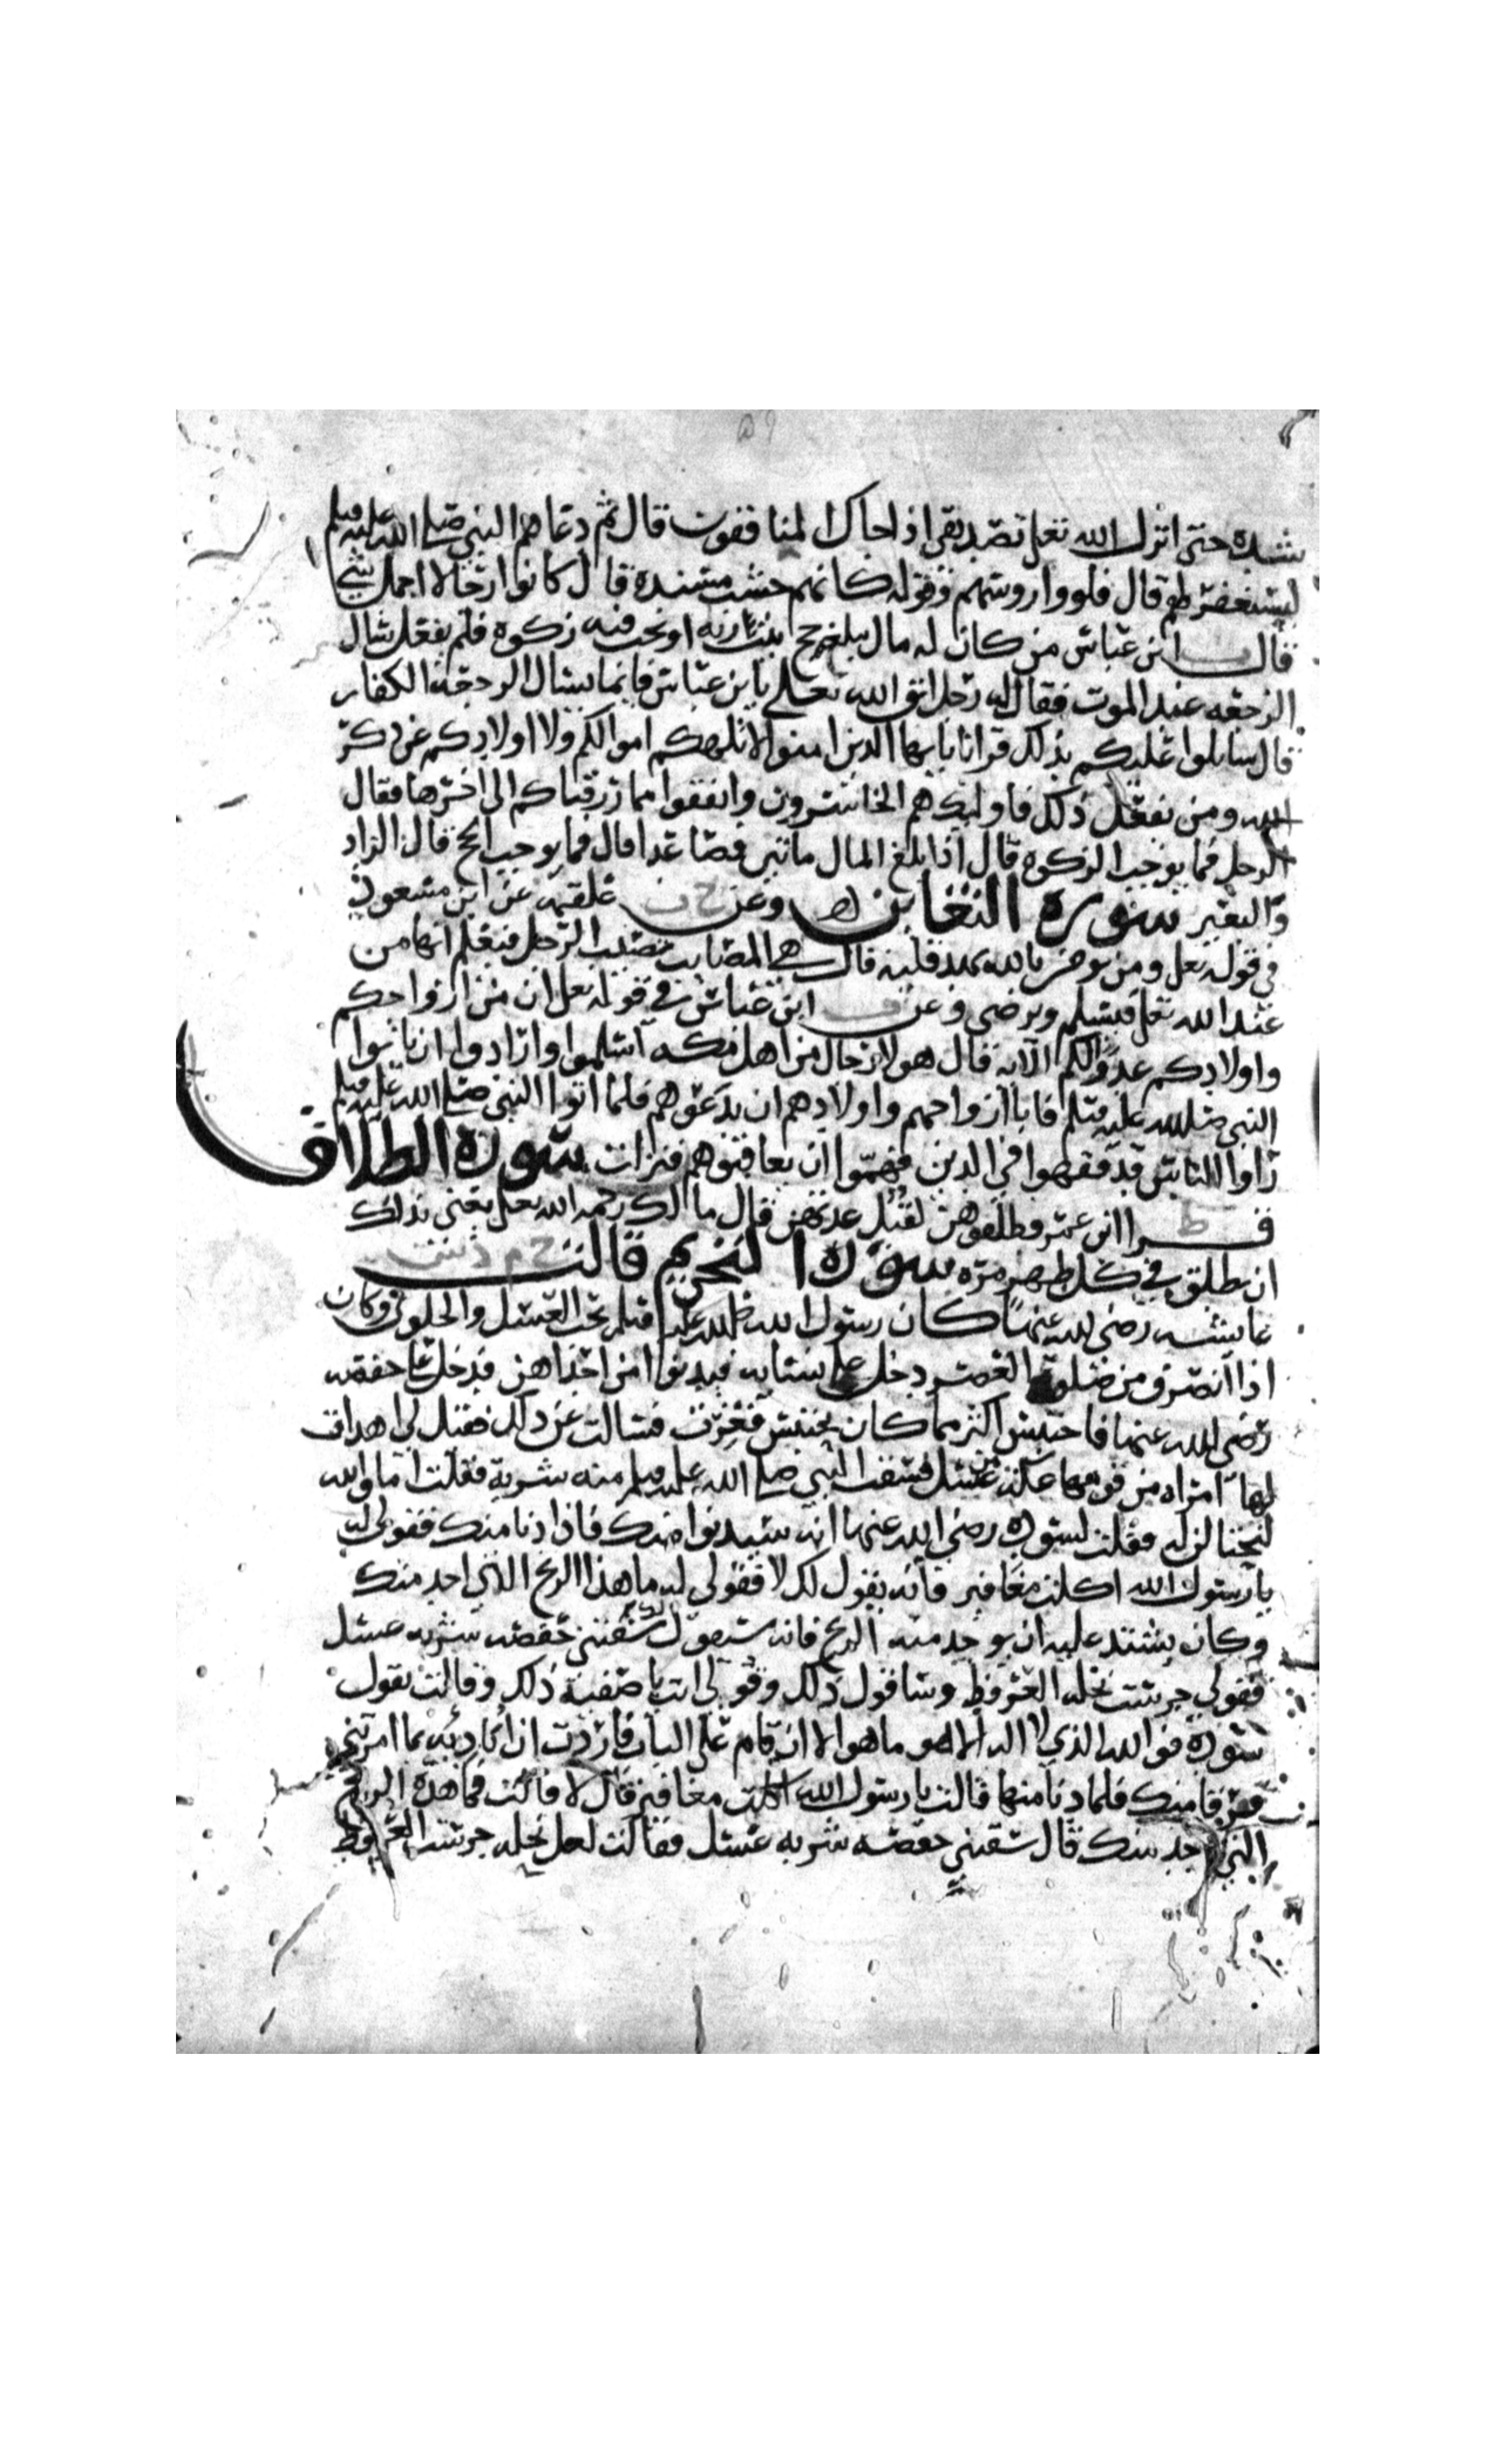 شده حتى انزل الله تعلى تصديقي اذا جاك المنافقون قال ثم دعاهم النبي صلى الله عليه وسلم
ليستغفر لهم قال فلووا روسهم وقوله كانهم خشب مسنده قال كانوا رجالا اجمل شي
قال ابن عباس من كان له مال يبلغ حج بيت ربه او تجب فيه زكوه فلم يفعل سال
الرجعه عند الموت فقال له رجل اتق الله تعلى يابن عباس فانما يسال الرجعه الكفار
قال ساتلوا عليكم بذلك قرانا يايها الذين امنوا لا تلهكم اموالكم ولا اولادكم عن ذكر
الله ومن يفعل ذلك فاوليك هم الخاسرون وانفقوا مما رزقناكم الى اخرها فقال
الرجل فما يوجب الزكوه قال اذا بلغ المال ماتين فصاعدا قال فما يوجب الحج قال الزاد
والبعير سورة التغابن وعن علقمه عن ابن مسعود
في قوله تعلى ومن يومن بالله يهد قلبه قال هي المصايب تصيب الرجل فيعلم انها من
عند الله تعلى فيسلم ويرضى وعن ابن عباس في قوله تعلى ان من ازواجكم
واولادكم عدوا لكم الايه قال هولا رجال من اهل مكه اسلموا وارادوا ان ياتوا
النبي صلى الله عليه وسلم فابا ازواجهم واولادهم ان يدعوهم فلما اتوا النبي صلى الله عليه وسلم
راوا الناس قد فقهوا في الدين فهموا ان يعاقبوهم فنزلت سورة الطلاق
قرا ابن عمر فطلقوهن لقبل عدتهن قال مالك رحمه الله تعلى يعني بذلك
ان يطلق في كل طهر مره سورة التحريم قالت
عايشه رضي الله عنها كان رسول الله صلى الله عليه وسلم يحب العسل والحلوى وكان
اذا انصرف من صلوة العصر دخل على نسايه فيدنوا من احداهن فدخل على حفصه
رضي الله عنها فاحتبس اكثر مما كان يحتبس فغرت فسالت عن ذلك فقيل لي اهدت
لها امراه من قومها عكه من عسل فسقت النبي صلى الله عليه وسلم منه شربة فقلت اما والله
لنحتالن له فقلت لسوده رضي الله عنها انه سيدنوا منك فاذا دنا منك فقولي له
يا رسول الله اكلت مغافير فانه يقول لك لا فقولي له ما هذا الريح الذي اجد منك
وكان يشتد عليه ان يوجد منه الريح فانه سيقول لك سقتني حفصه شربه عسل
فقولي جرست نحله العرفط وساقول ذلك وقولي انت يا صفيه ذلك وقالت تقول
سوده فوالله الذي لا اله الا هو ما هو الا ان قام على الباب فاردت ان اباديه بما امرتني
فرقا منك فلما دنا منها قالت يا رسول الله اكلت مغافير قال لا قالت فما هذه الريح
التي اجد منك قال سقتني حفصه شربه عسل فقالت لعل نحله جرست العرفط